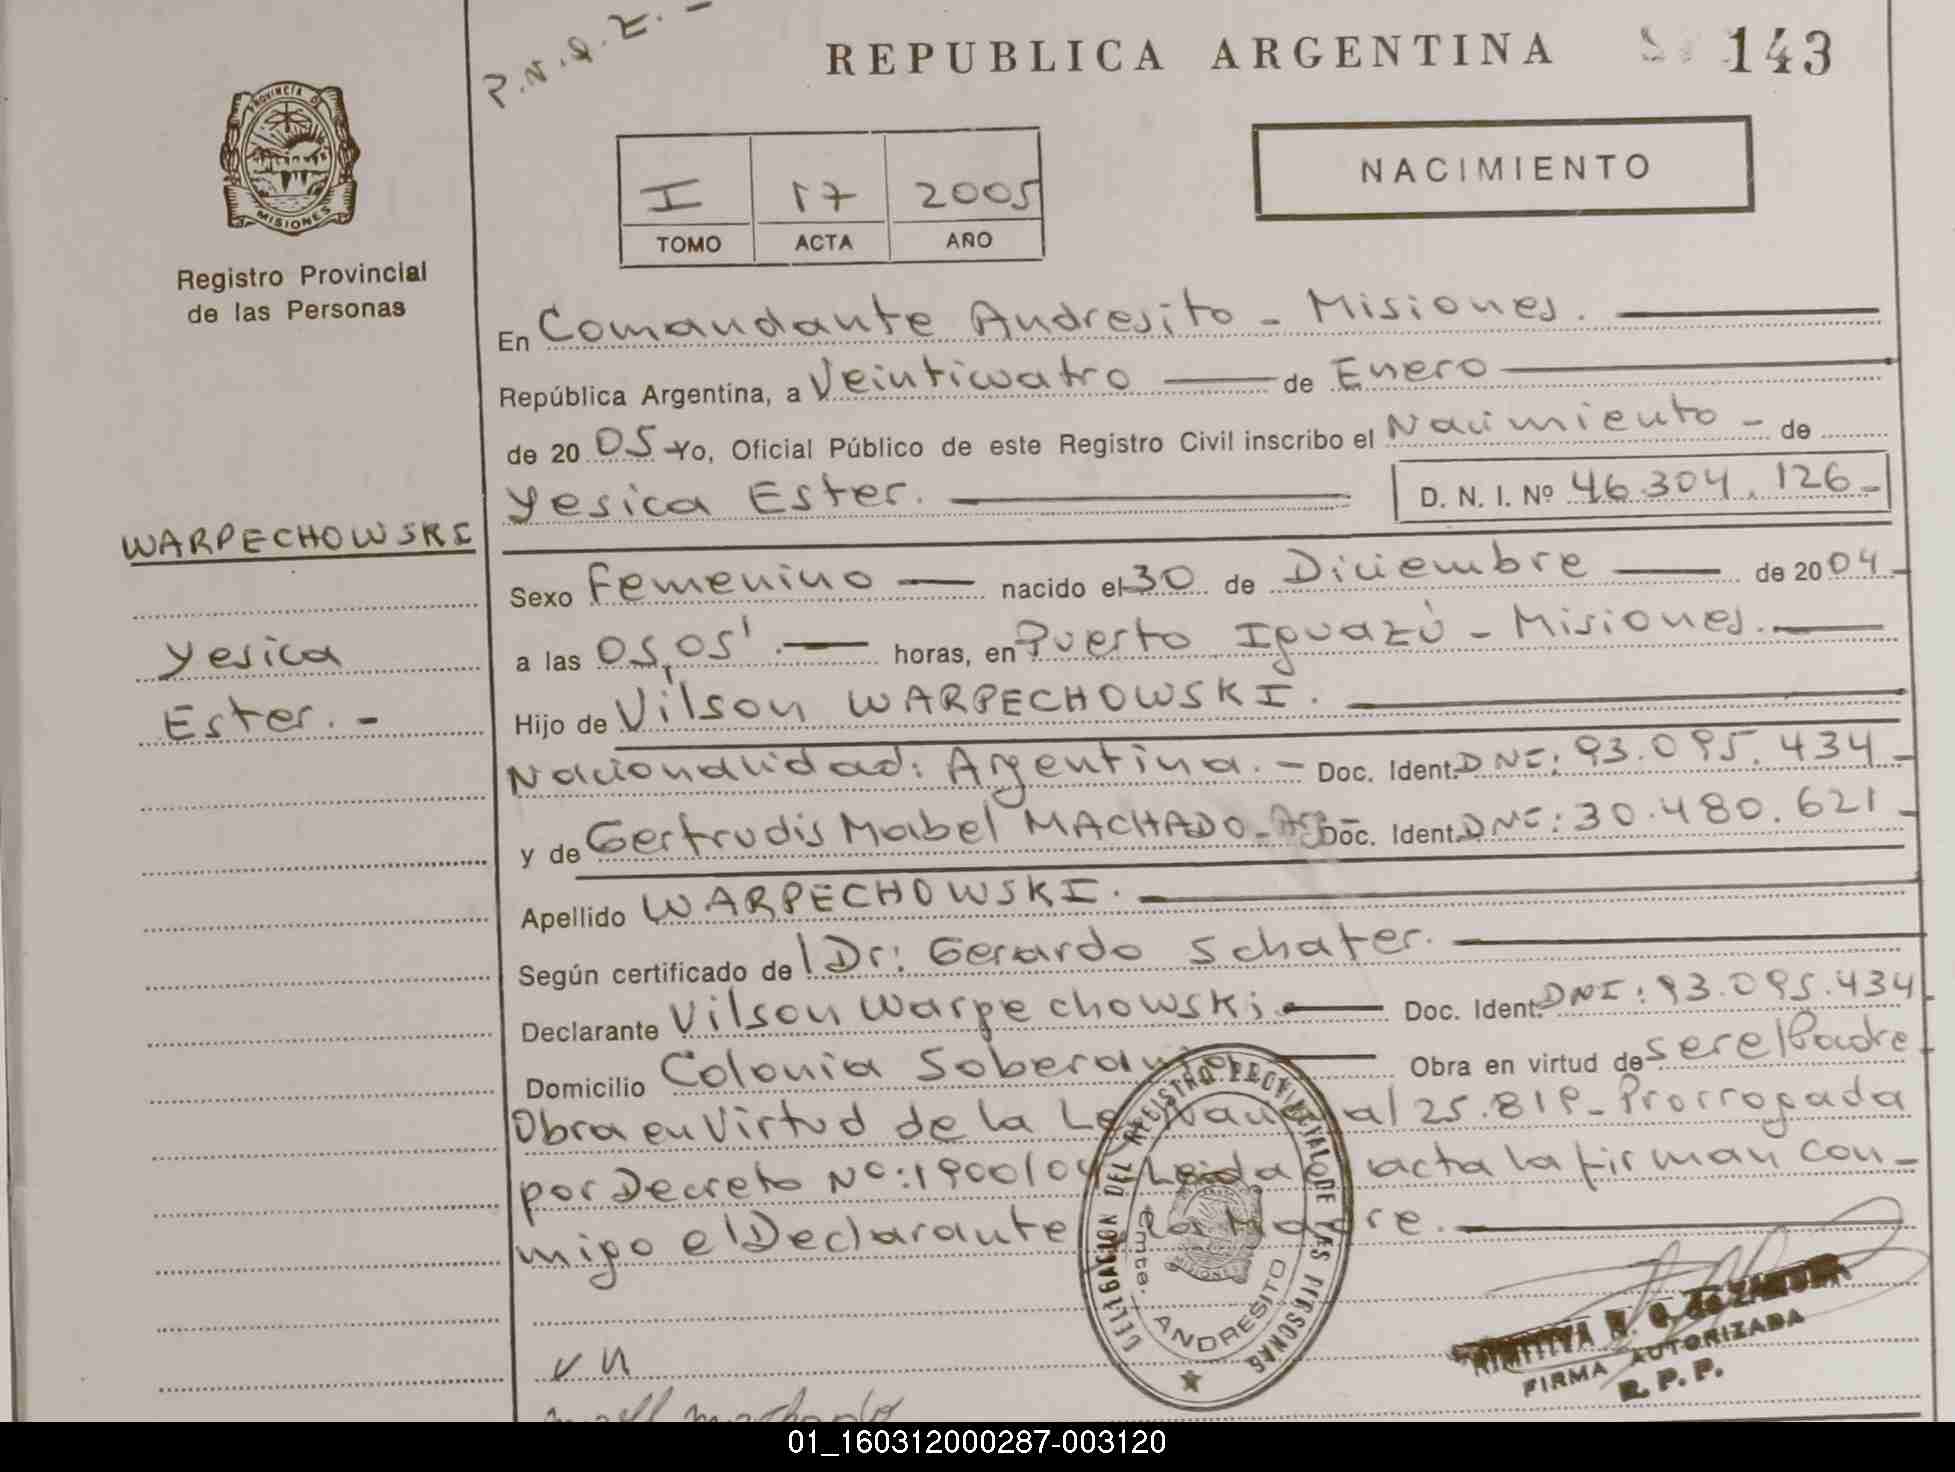 P.N.Q.E. -
REPUBLICA ARGENTINA 143
PROVINCIA DE
MISIONES
Registro Provincial
de las Personas
I 17 2005
TOMO ACTA AÑO
NACIMIENTO
En Comandante Andresito - Misiones.
República Argentina, a Veinticuatro de Enero
de 20 05 Yo, Oficial Público de este Registro Civil inscribo el Nacimiento - de
Yesica Ester. D. N. I. Nº 46.304.126-
WARPECHOWSKI
Yesica
Ester. -
Sexo Femenino nacido el 30 de Diciembre de 2004
a las 05,05'. horas, en Puerto Iguazú - Misiones.
Hijo de Vilson WARPECHOWSKI.
Nacionalidad: Argentina. - Doc. Ident. DNI: 93.095.434-
y de Gertrudis Mabel MACHADO - Doc. Ident. DNI: 30.480.621-
Apellido WARPECHOWSKI.
Según certificado de Dr: Gerardo Schafer.
Declarante Vilson Warpechowski Doc. Ident. DNI: 93.095.434
Domicilio Colonia Soberania Obra en virtud de ser el Padre
Obra en Virtud de la Ley Nacional 25.819- Prorrogada
por Decreto Nº: 1900/04 Leida el acta la firman con-
migo el Declarante y la Madre.
DELEGACION DEL REGISTRO PROVINCIAL DE LAS PERSONAS
Cmte. ANDRESITO
MISIONES
FIRMA AUTORIZADA
R. P. P.
v n
machado
01_160312000287-003120